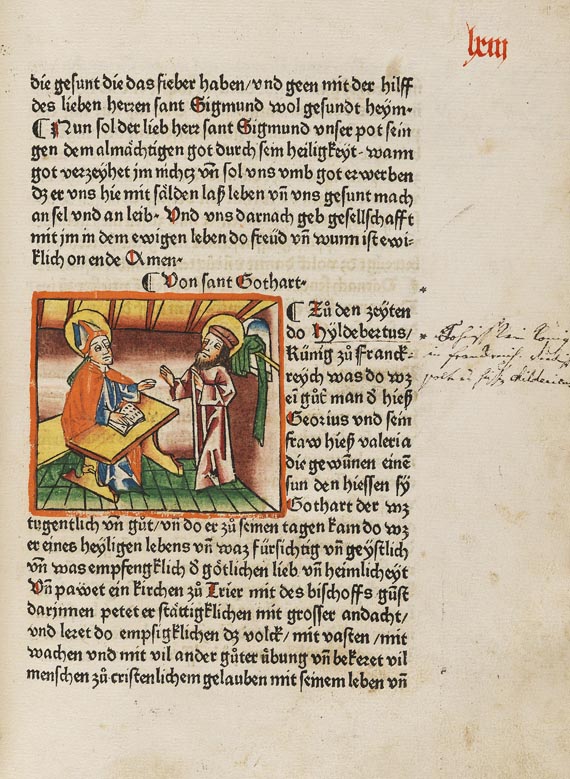 lxiii
die gesunt die das fieber haben/ vnd geen mit der hilff
des lieben herren sant Sigmund wol gesundt heym·
¶ Nun sol der lieb herr sant Sigmund vnser pot sein
gen dem almächtigen got durch sein heiligkeyt· wann
got verzeyhet jm nichcz vn̄ sol vns vmb got erwerben
dz er vns hie mit sälden laß leben vn̄ vns gesunt mach
an sel vnd an leib· Vnd vns darnach geb gesellschafft
mit jm in dem ewigen leben do freüd vn̄ wunn ist ewi-
klich on ende Amen·
¶ Von sant Gothart·
¶ Zů den zeyten
do Hyldebertus/
Künig zů Franck-
reych was do wz
ei gůt man d hieß
Georius vnd sein
fraw hieß valeria
die gewünen einē
sun den hiessen sy
Gothart der wz
tugentlich vn̄ gůt/ vn̄ do er zů seinen tagen kam do wz
er eines heyligen lebens vn̄ waz fürsichtig vn̄ geystlich
vn̄ was empfengklich d götlichen lieb vn̄ heimlicheyt
Vn̄ pawet ein kirchen zů Trier mit des bischoffs gůst
darjnnen petet er stättigklichen mit grosser andacht/
vnd leret do empsigklichen dz volck/ mit vasten/ mit
wachen vnd mit vil ander gůter übung vn̄ bekeret vil
menschen zů cristenlichem gelauben mit seinem leben vn̄